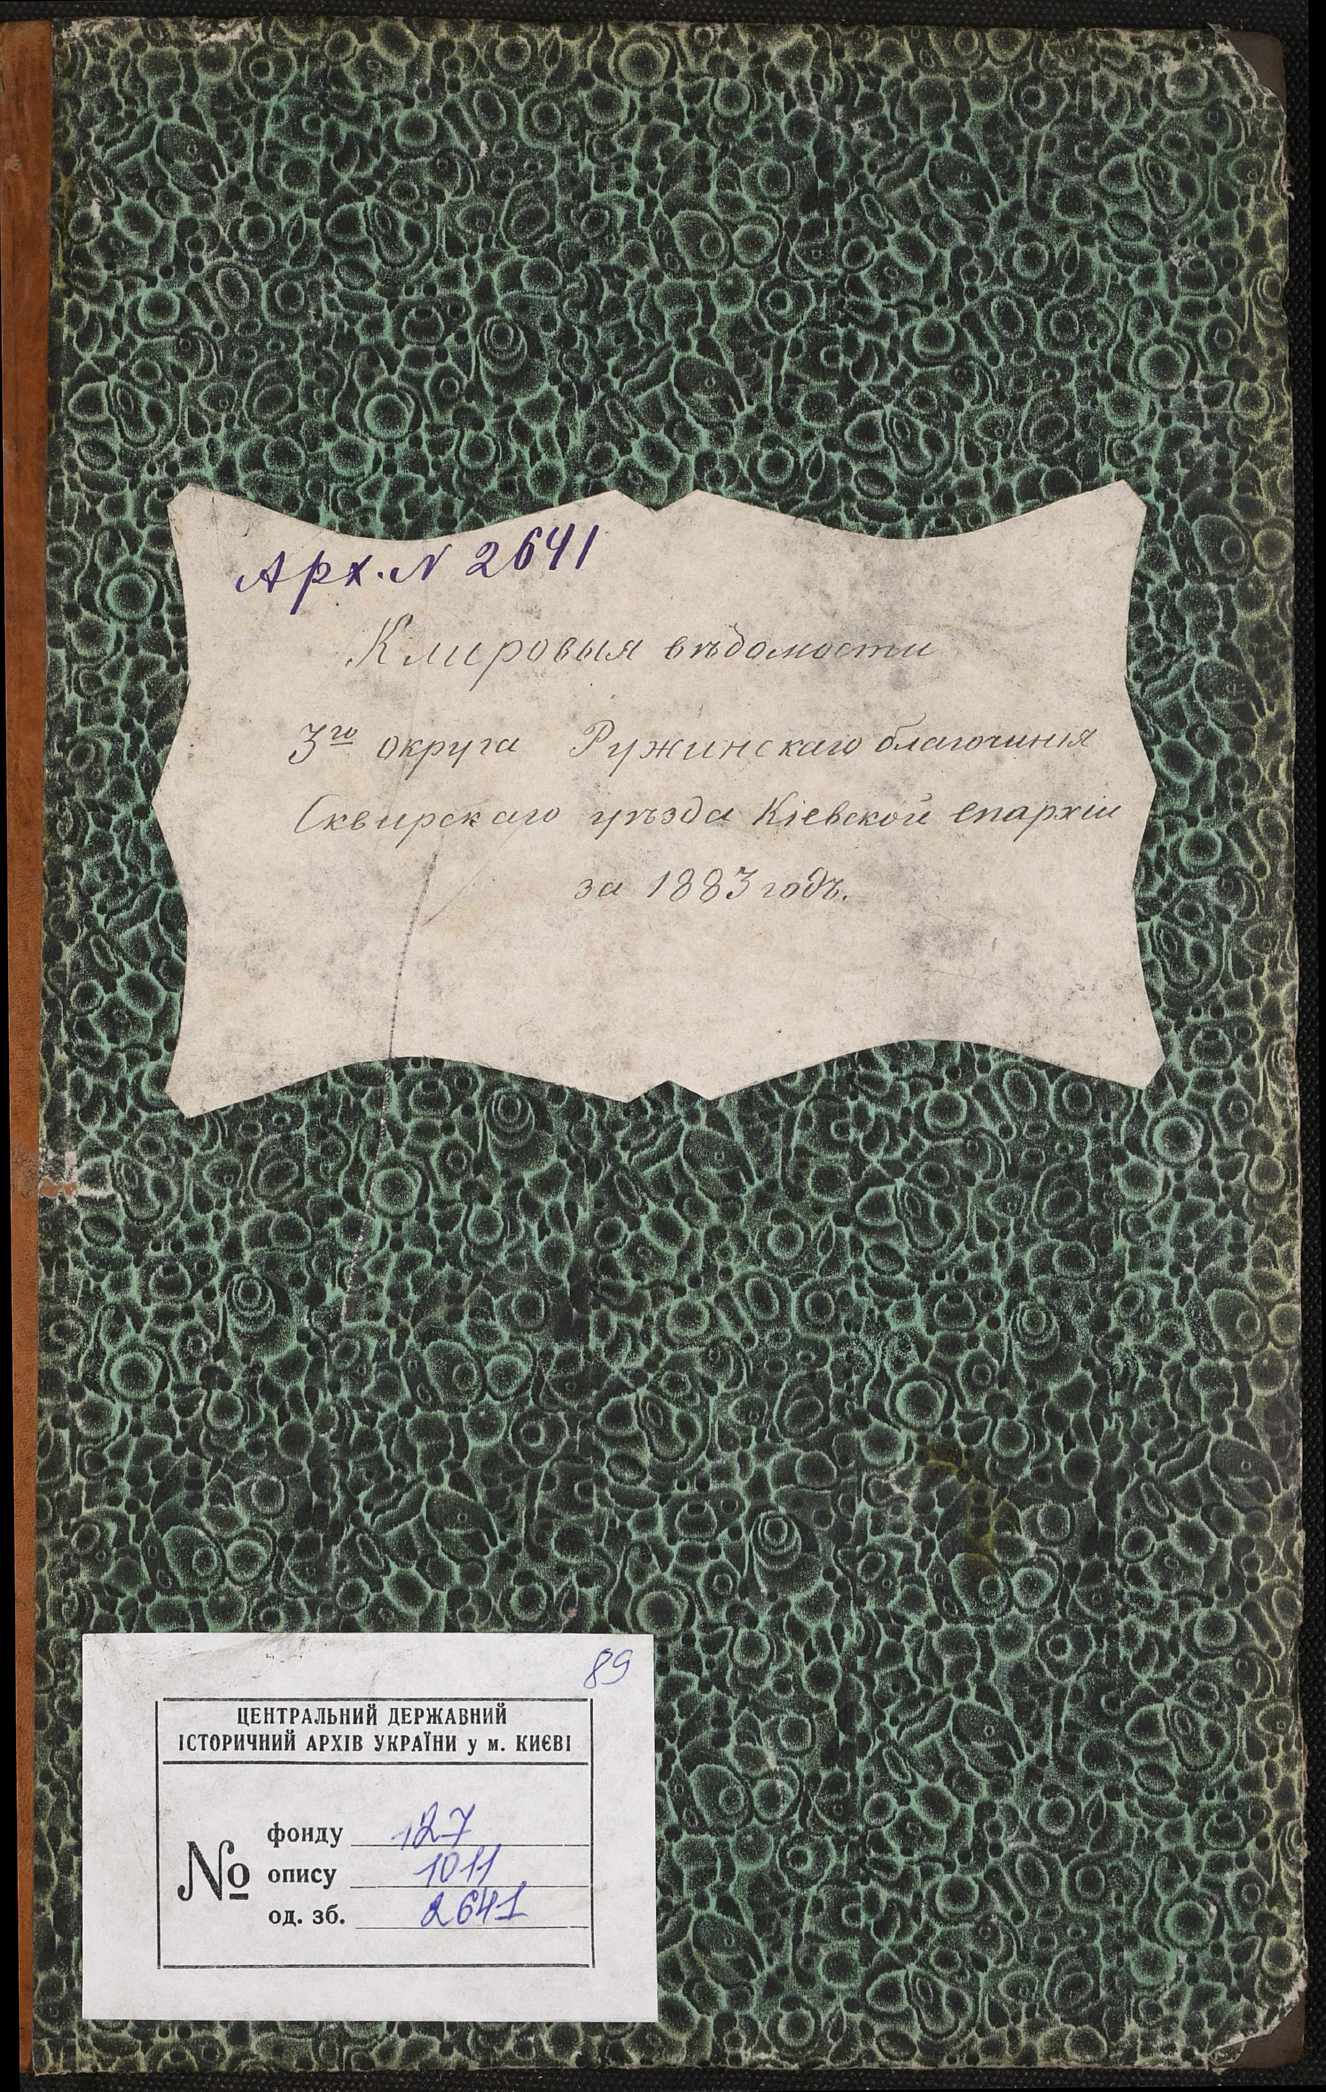 Арх. N 2641
Клировыя вѣдомости
3го округа Ружинскаго благочинія
Сквирскаго уѣзда Кіевской епархіи
за 1883 годъ.
89
ЦЕНТРАЛЬНИЙ ДЕРЖАВНИЙ
ІСТОРИЧНИЙ АРХІВ УКРАЇНИ у м. КИЄВІ
№
фонду 127
опису 1011
од. зб. 2641